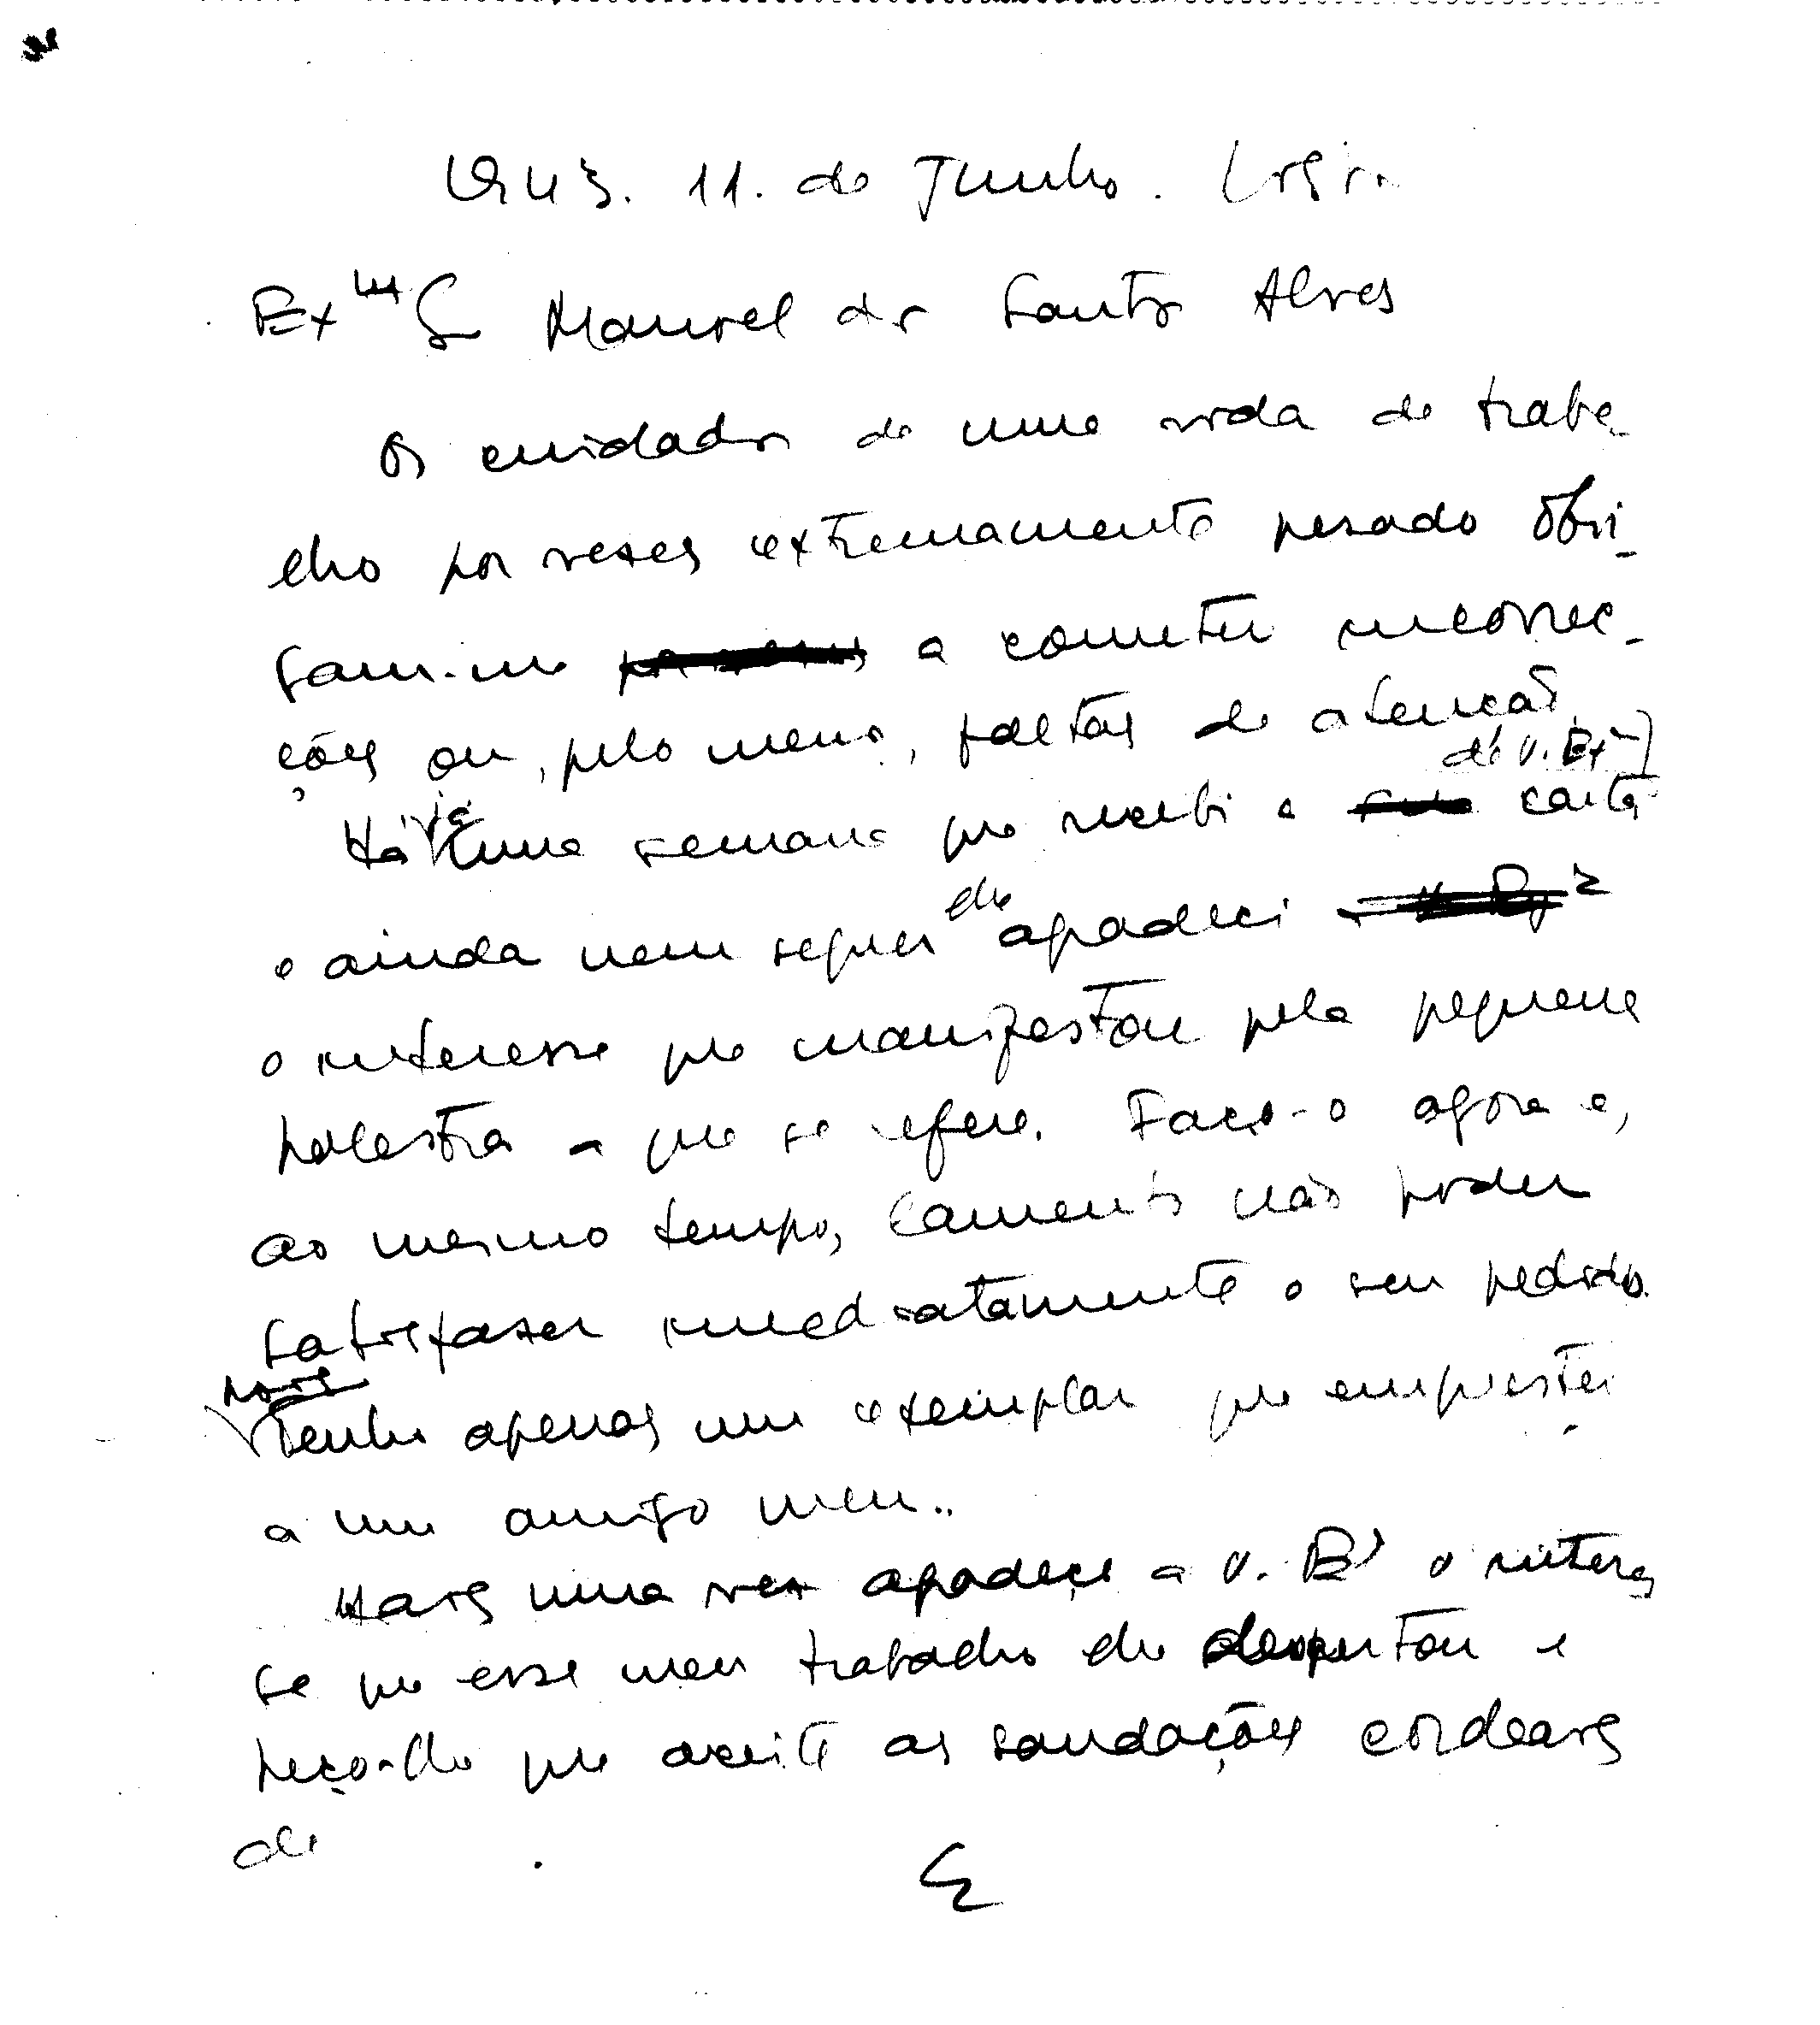 1943. 11. de Junho. Lisboa
Exmo Sr Manuel dos Santos Alves
Os cuidados de uma vida de traba-
lho por vezes extremamente pesado obri-
gam-me a cometer incorrec-
ções ou, pelo menos, faltas de atenção.
de V. Exa
Há já uma semana que recebi a carta
e ainda nem sequer lhe agradeci
o interesse que manifestou pela pequena
palestra a que se refere. Faço-o agora e,
ao mesmo tempo, lamento não poder
satisfazer imediatamente o seu pedido.
pois
Tenho apenas um exemplar que emprestei
a um amigo meu..
Mais uma vez agradeço a V. Exa o interes
se que esse meu trabalho lhe despertou e
peço-lhe que aceite as saudações cordeais
de